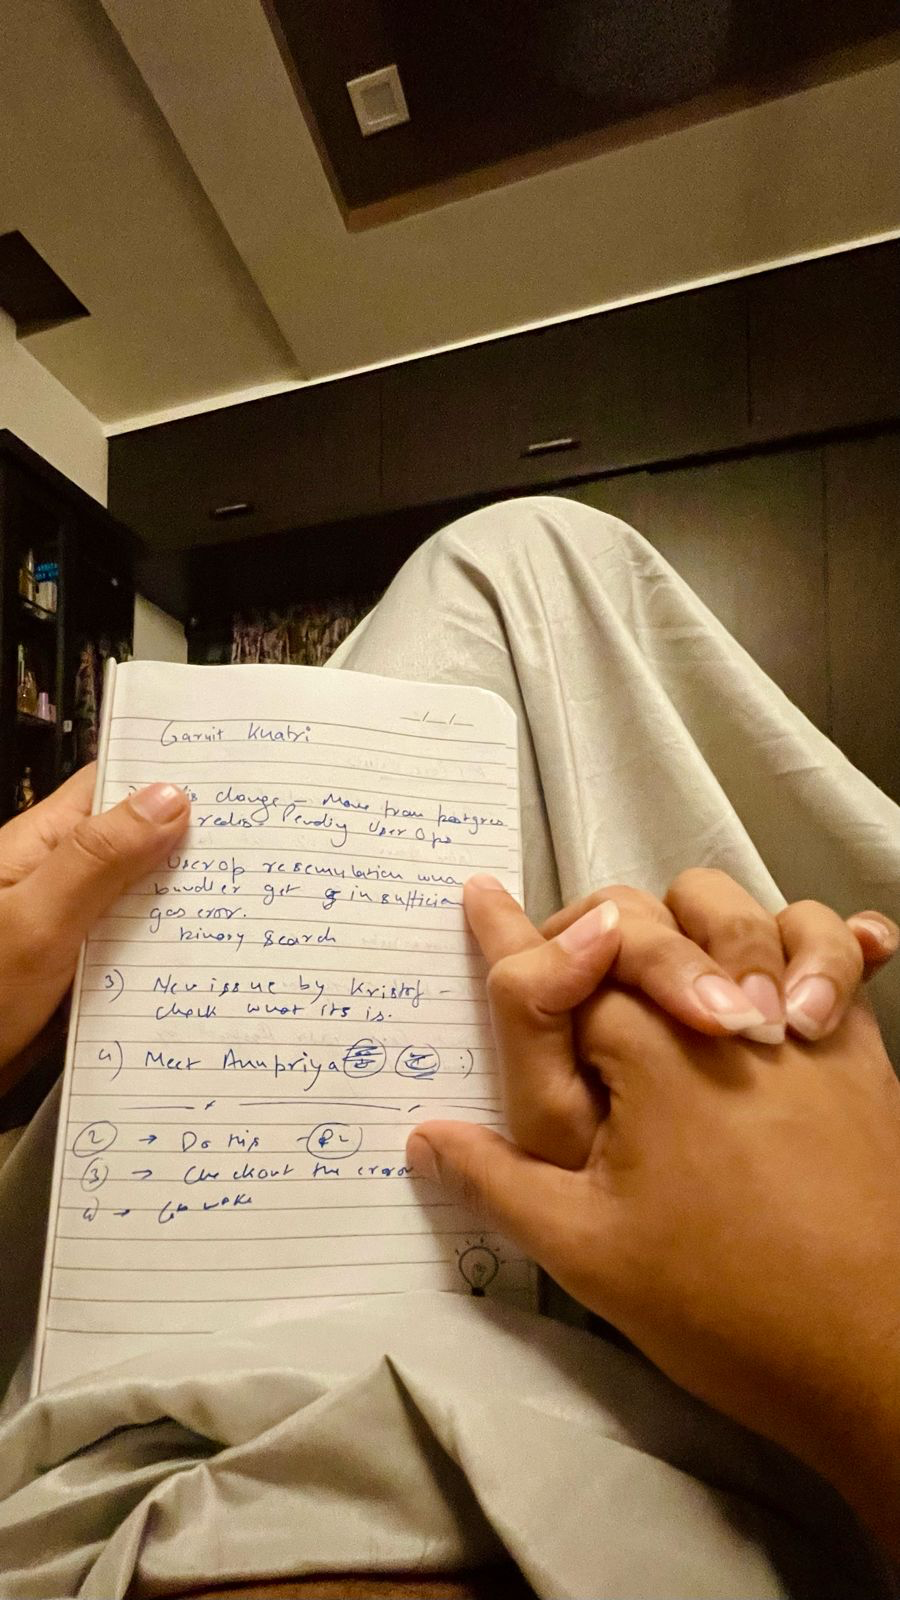 Garvit Khatri
change - Move from postgres
redis. Pending User Ops
UserOp resemulation when
bundler get insufficien
gas error.
binary search
3) New issue by Kristof -
check what its is.
4) Meet Anupriya :)
② → Do this -
③ → Checkout the error
4) →